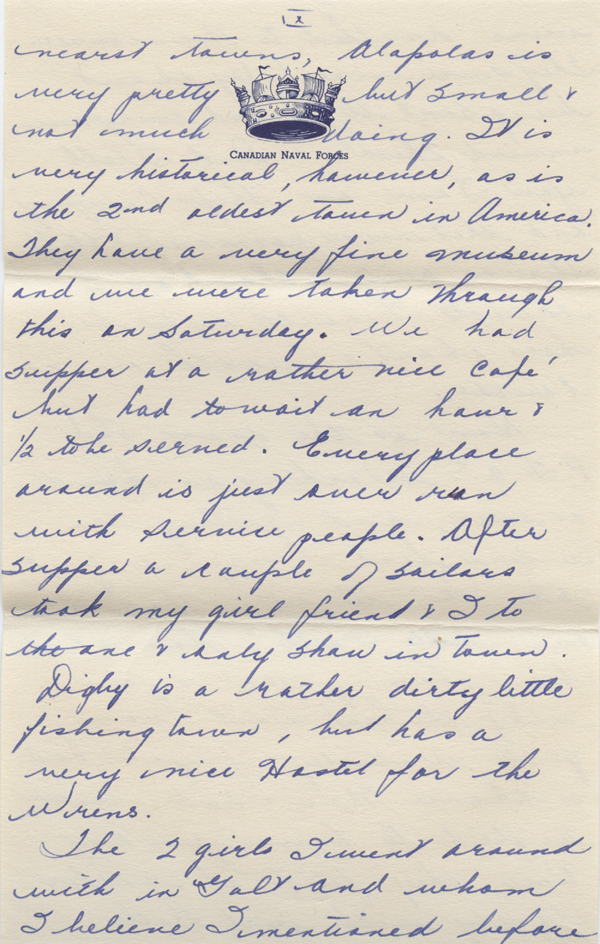 IX
nearst towns, Alapolas is
very pretty but small &
not much doing. It is
CANADIAN NAVAL FORCES
very historical, however, as is
the 2nd oldest town in America.
They have a very fine museum
and we were taken through
this on Saturday. We had
supper at a rather nice café
but had to wait an hour &
1/2 to be served. Every place
around is just over run
with service people. After
supper a couple of sailors
took my girl friend & I to
the one & only show in town.
Digby is a rather dirty little
fishing town, but has a
very nice Hostel for the
Wrens.
The 2 girls I went around
with in Galt and whom
I believe I mentioned before